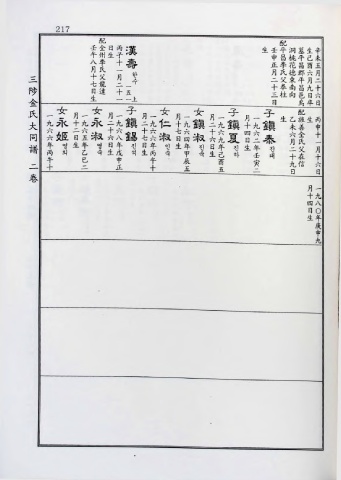 217
辛未五月二十六日
生己酉六月九日卒
墓平昌郡平昌邑烏
洞桃花德東南向
配平昌李氏父春柱
壬申正月二十三日
生
漢壽 한수 一五一上
丙子十一月二十一
日生
配全州李氏父龍漢
壬午八月十七日生
丙申十一月十六日
生
配旌善全氏父在信
乙未六月二十九日
生
子鎭泰 진태
一九六二年壬寅二
月十四日生
子鎭夏 진하
一九六九年己酉五
月二十六日生
女鎭淑 진숙
一九六四年甲辰五
月十七日生
女仁淑 인숙
一九六六年丙午十
二月二十七日生
子鎭錫 진석
一九六八年戊申正
月二十六日生
女永淑 영숙
一九六五年乙巳二
月十二日生
女永姬 영희
一九六六年丙午十
一九八〇年庚申九
月十四日生
三陟金氏大同譜 二卷